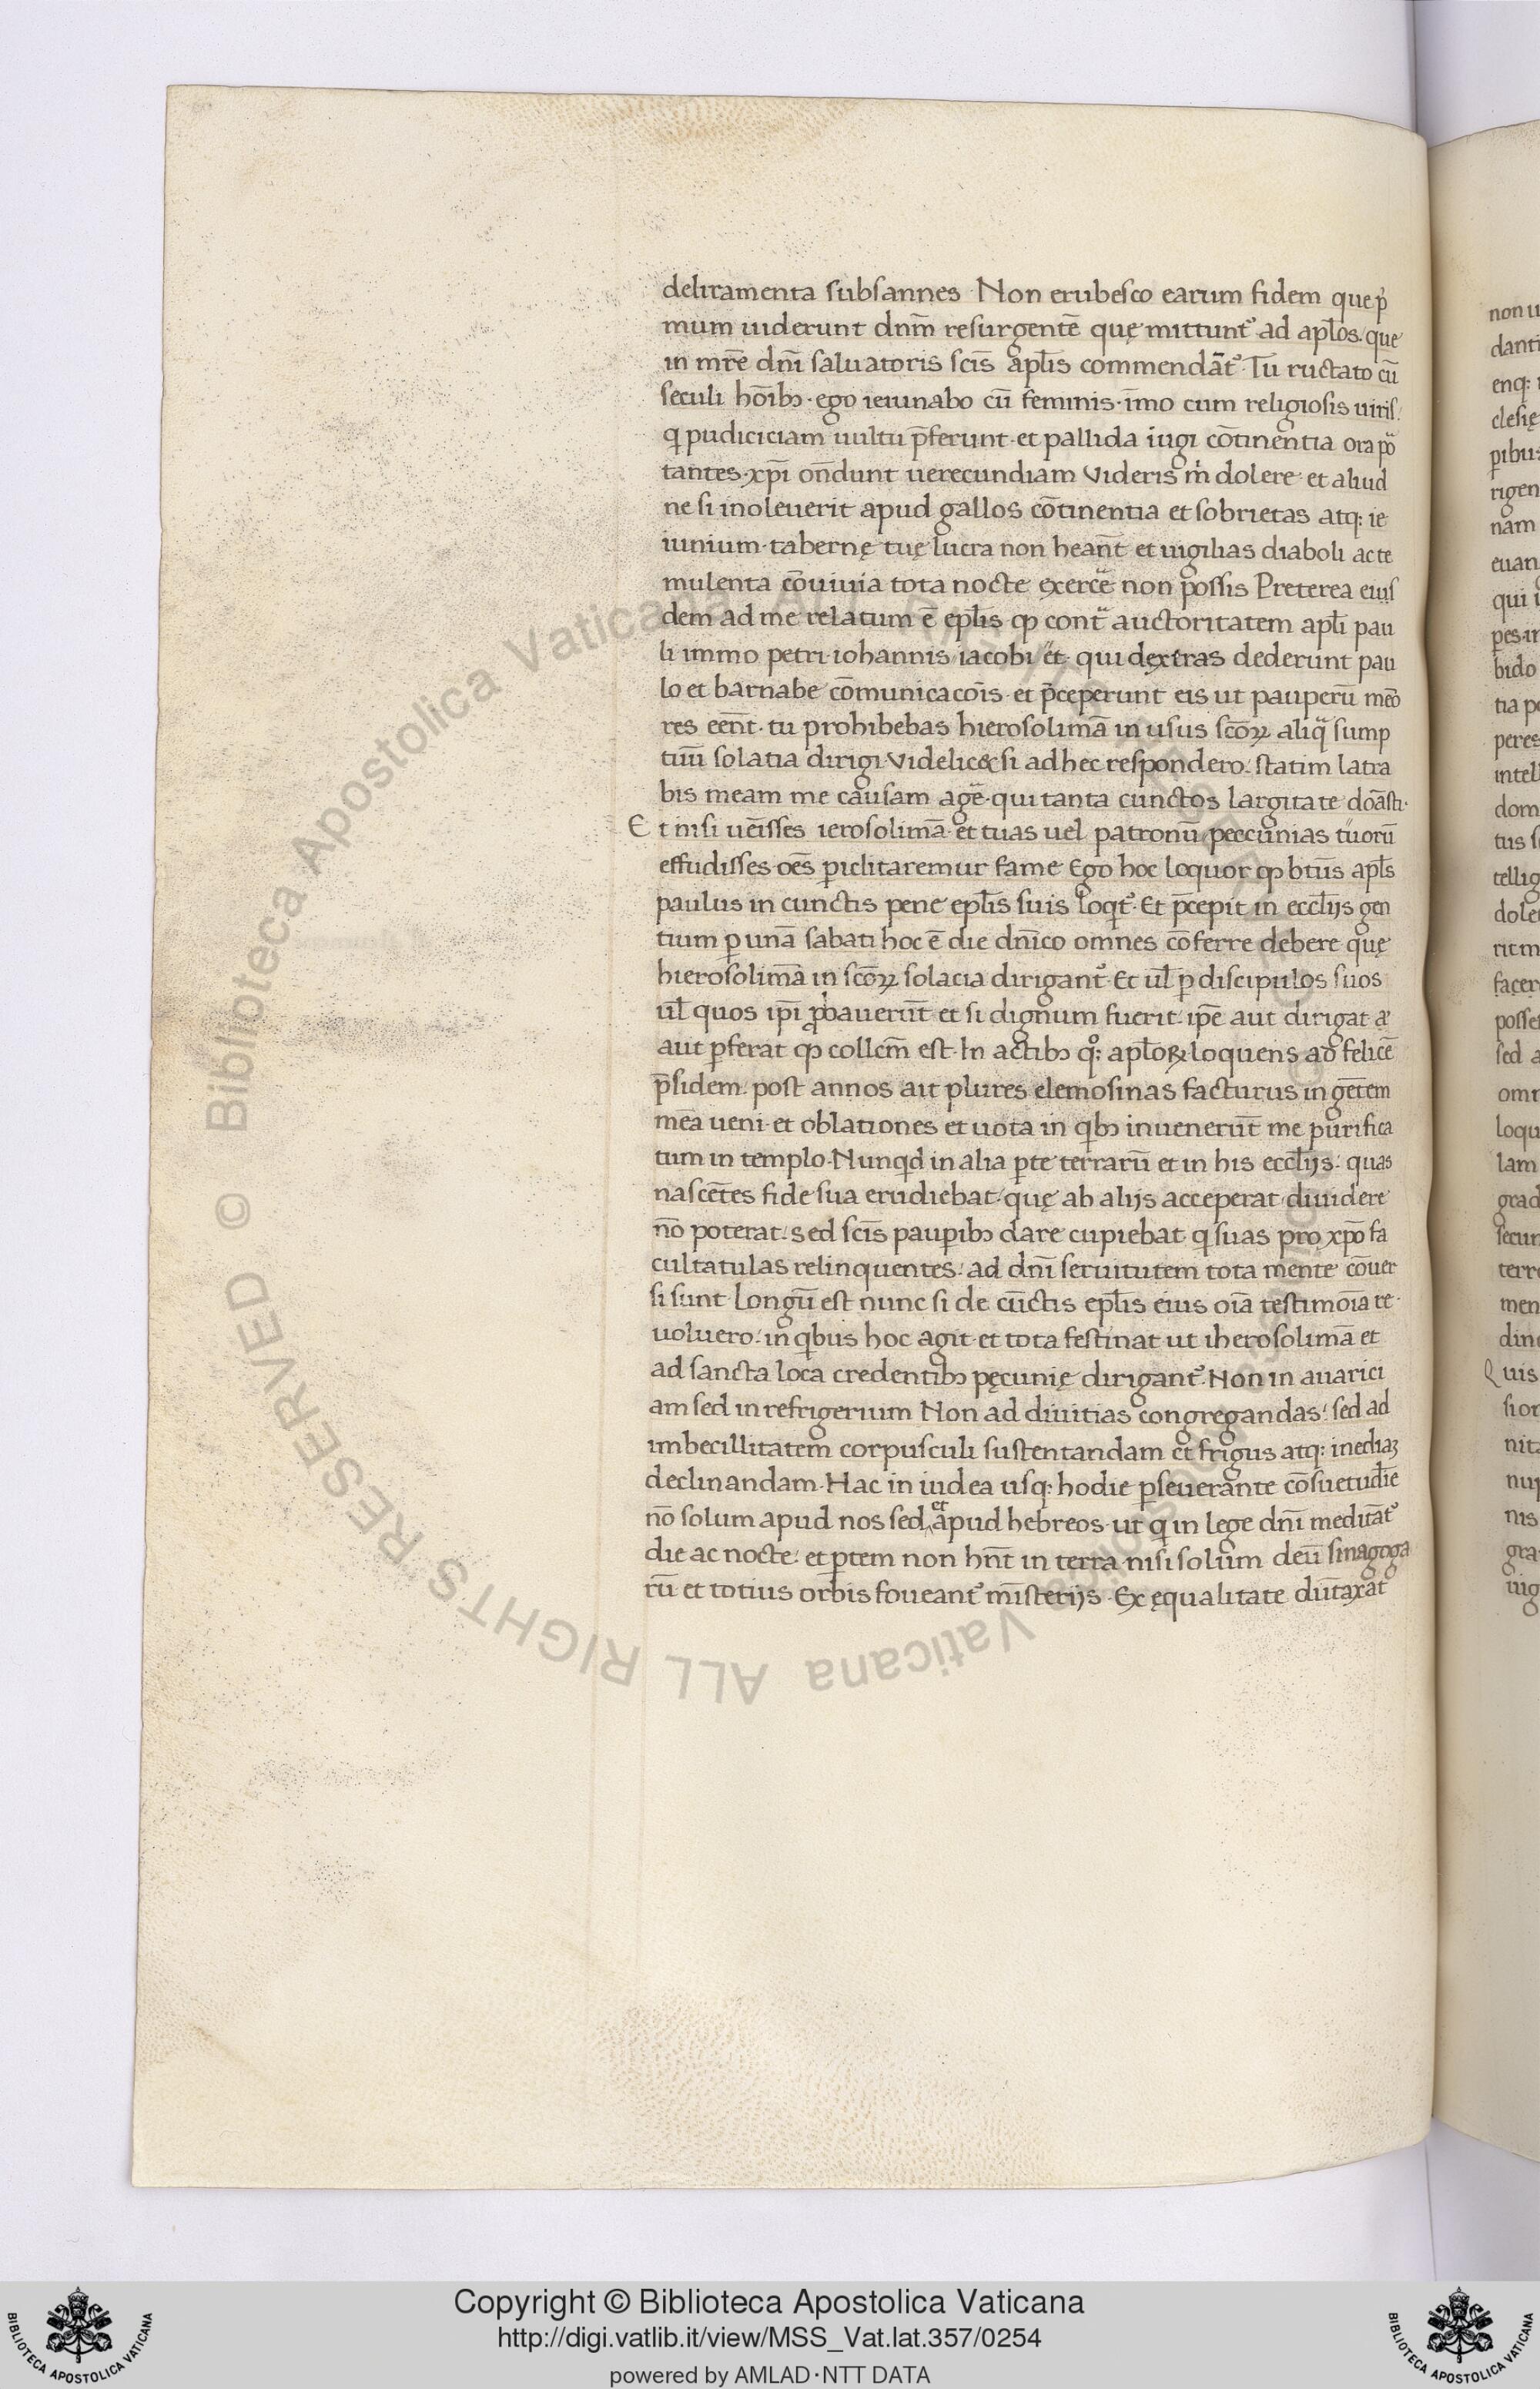 deliramenta subsannes. Non erubesco earum fidem que pͥ
mum uiderunt dn̄m resurgentē quę mittunt᷒ ad apl̄os. que
in mr̄e dn̄i saluatoris scīs apl̄is commendāt᷒. Tu ructato cū
seculi hōibꝫ · ego ieiunabo cū feminis · īmo cum religiosis uiris.
q pudiciciam uultu p̄ferunt · et pallida iugi cōtinentia ora
tantes. xp̄i on̄dunt uerecundiam Videris m̍ dolere et aliud
ne si inoleuerit apud gallos cōtinentia et sobrietas atq: ie
iunium · tabernę tuę lucra non hean̄t et uigilias diaboli ac te
mulenta cōuiuia tota nocte exerce non possis Preterea eius
dem ad me relatum ē epl̄is ꝙ cont auctoritatem apl̄i pau
li immo petri iohannis iacobi et · qui dextras dederunt pau
lo et barnabe cōmunicacoīs · et p̄ceperunt eis ut pauperū meō
res een̄t · tu prohibebas hierosolimā in usus scōꝝ aliq sump
tuū solatia dirigi. Videlic& si ad hec respondero. statim latra
bis meam me causam age · qui tanta cunctos largitate doāsti ·
Et nisi uēisses ierosolimā et tuas uel patronū peccunias tuorū
effudisses oēs ꝑiclitaremur fame. Ego hoc loquor ꝙ btūs apl̄s
paulus in cunctis pene epl̄is suis loqt᷒. Et p̄cepit in eccl̄ijs gen
tium ꝑ unā sabati hoc ē die dn̄ico omnes cōferre debere quę
hierosolimā in scōꝝ solacia dirigant᷒. Et ul̄ ꝑ discipulos suos
ul̄ quos ip̄i ꝓbauerūt et si dignum fuerit. ip̄e aut dirigat
aut ꝑferat ꝙ collcm̄ est. In actibꝫ qͦ: apl̄oꝝ loquens ad felicē
p̄sidem. post annos ait plures elemosinas facturus in gētem
meā ueni et oblationes et uota in qbꝫ inuenerūt me purifica
tum in templo. Nunqd in alia ꝑte terrarū et in his eccl̄ijs: quas
nascētes fide sua erudiebat. quę ab alijs acceperat diuidere
nō poterat. sed scīs paupibꝫ dare cupiebat q suas pro xp̄o fa
cultatulas relinquentes. ad dn̄i seruitutem tota mente cōuer
si sunt Longū est nunc si de cūctis epl̄is eius oīa testimoīa re
uoluero. in qbus hoc agit et tota festinat ut iherosolimā et
ad sancta loca credentibꝫ pęcunię dirigant᷒. Non in auarici
am sed in refrigerium Non ad diuitias congregandas. sed ad
imbecillitatem corpusculi sustentandam et frigus atq: inediaꝫ
declinandam. Hac in iudea usq: hodie ꝑseuerante cōsuetudīe
nō solum apud nos sed et apud hebreos ut q in lege dn̄i meditāt᷒
die ac nocte. et ꝑtem non hn̄t in terra nisi solum deū sinagoga
rū et totius orbis foueant᷒ mīsterijs. Ex ęqualitate dūtaxat
Copyright © Biblioteca Apostolica Vaticana
http://digi.vatlib.it/view/MSS_Vat.lat.357/0254
powered by AMLAD·NTT DATA
BIBLIOTECA APOSTOLICA VATICANA
BIBLIOTECA APOSTOLICA VATICANA
© Biblioteca Apostolica Vaticana ALL RIGHTS RESERVED